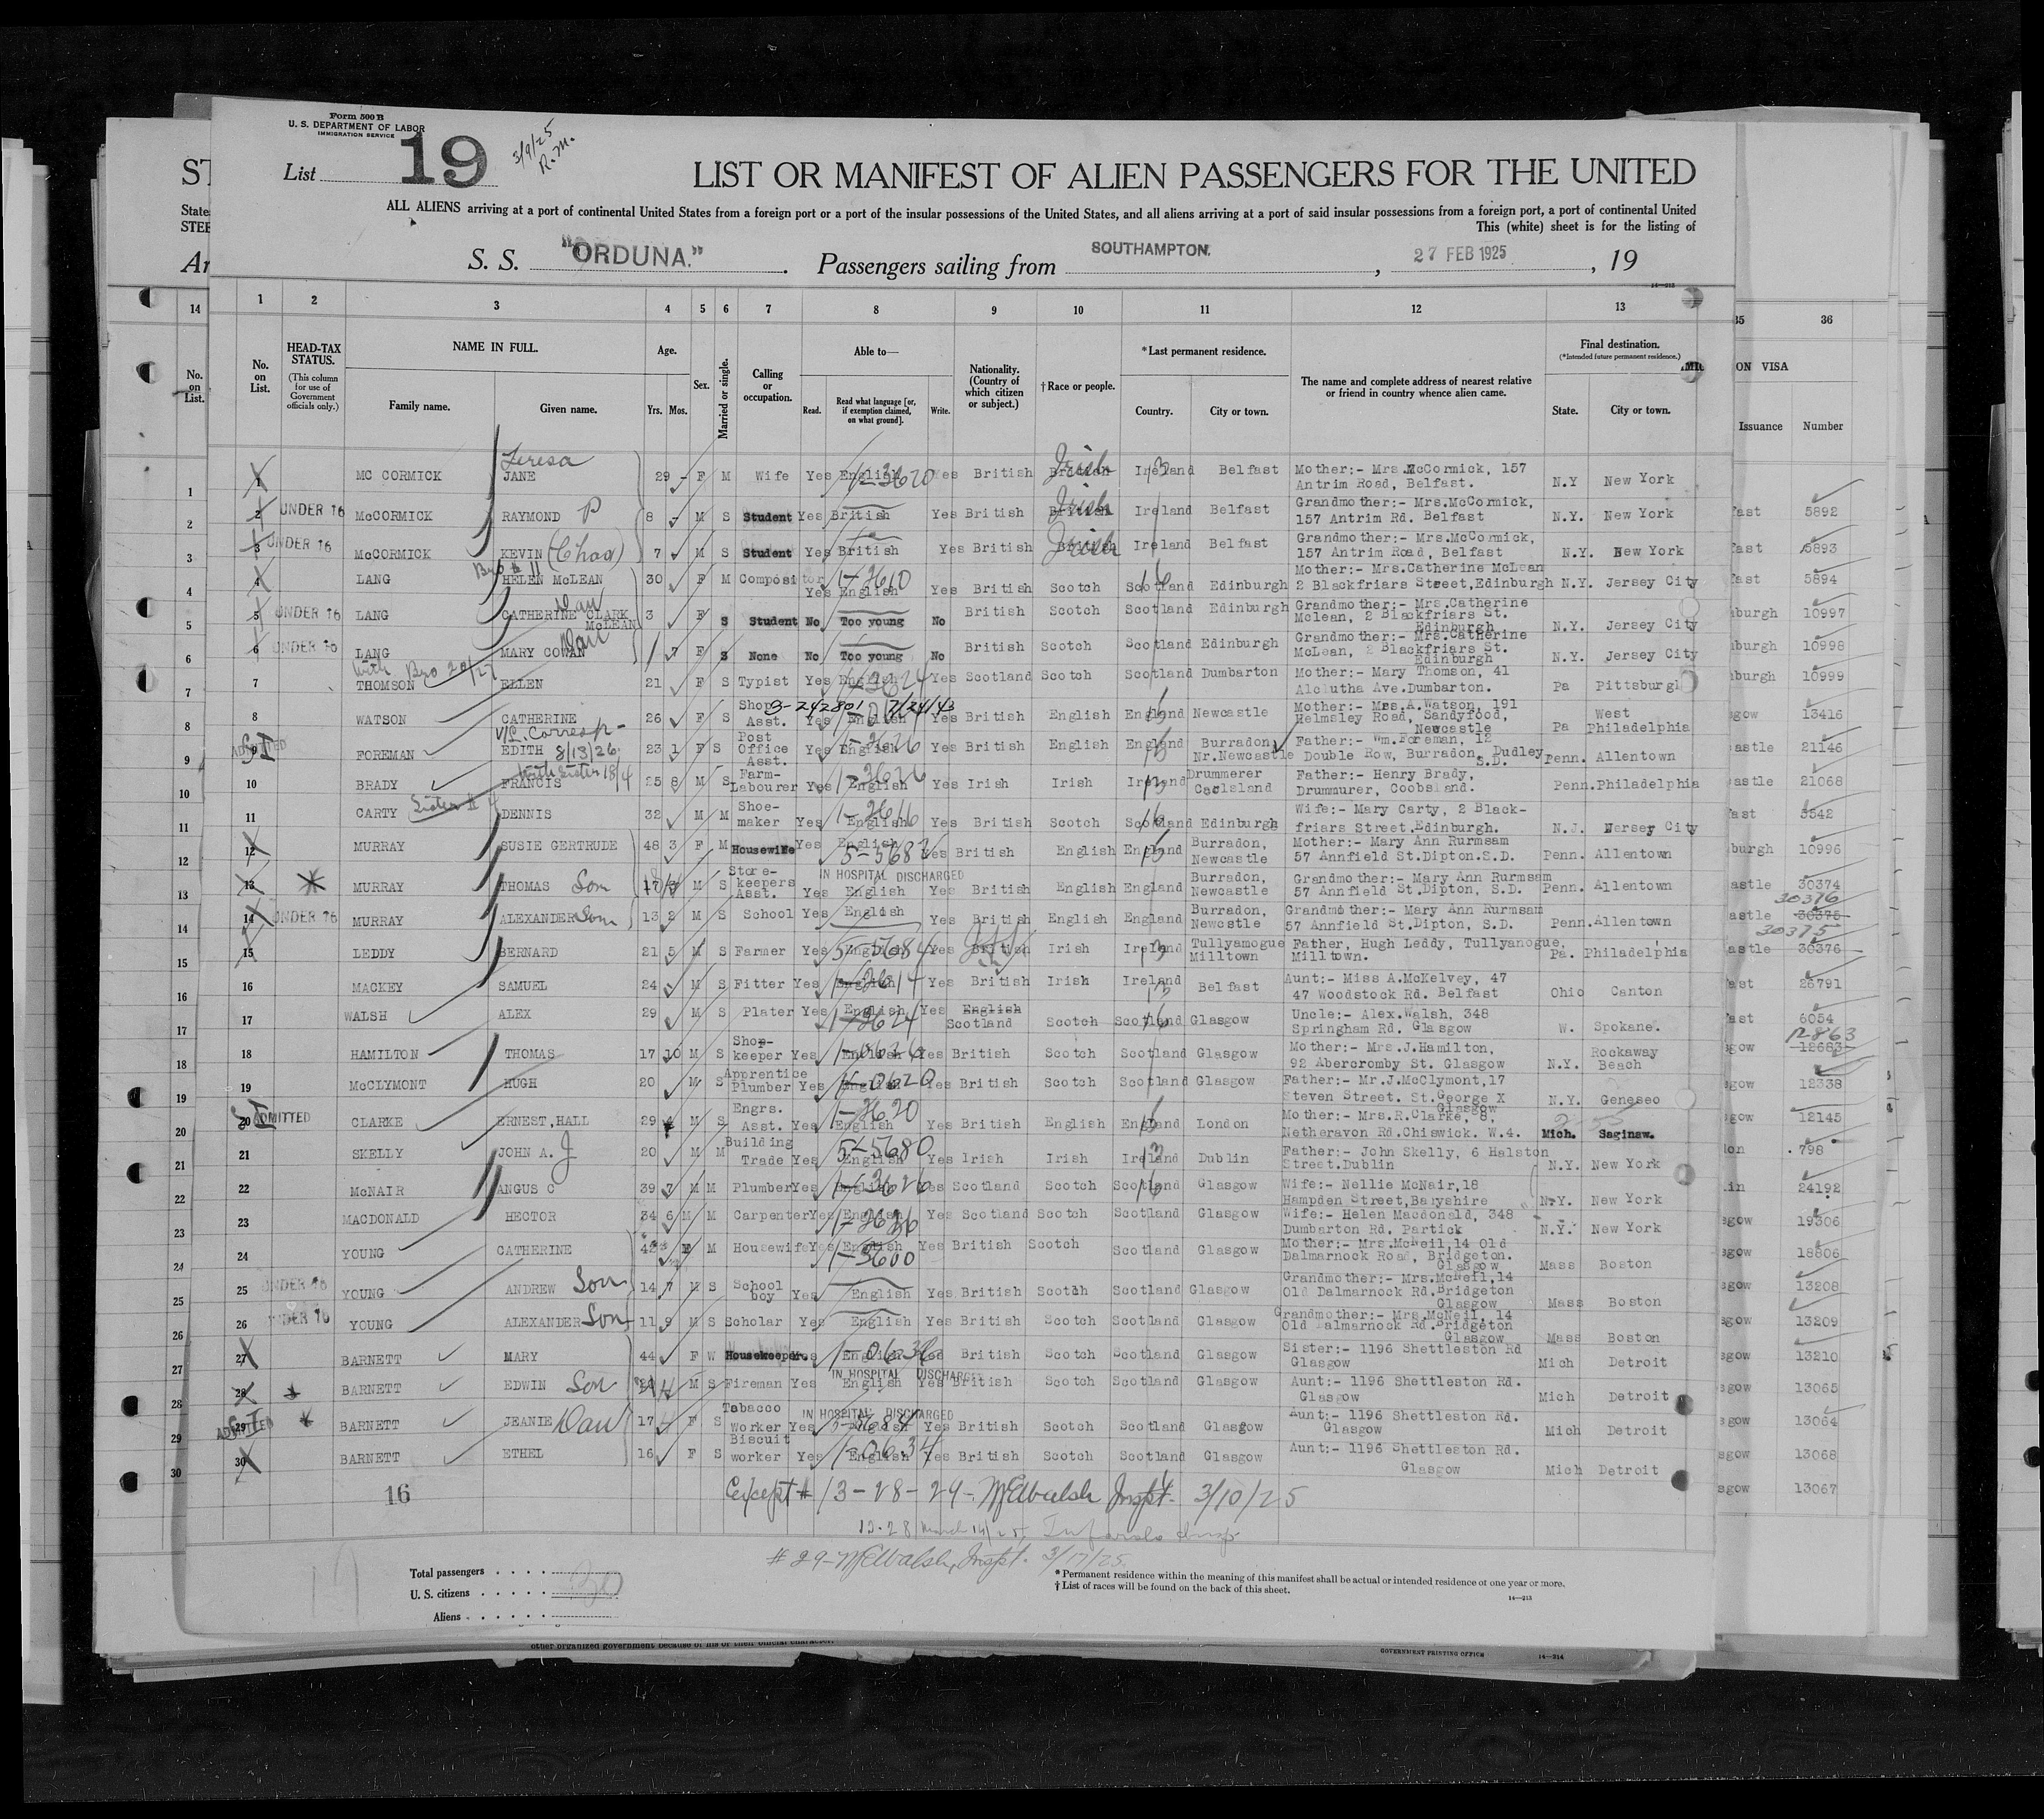 Form 500 B
U. S. DEPARTMENT OF LABOR
IMMIGRATION SERVICE
List 19
3/9/25
R.M.
LIST OR MANIFEST OF ALIEN PASSENGERS FOR THE UNITED
ALL ALIENS arriving at a port of continental United States from a foreign port or a port of the insular possessions of the United States, and all aliens arriving at a port of said insular possessions from a foreign port, a port of continental United
This (white) sheet is for the listing of
S. S. "ORDUNA." Passengers sailing from SOUTHAMPTON. , 27 FEB 1925 , 19
1 2 3 4 5 6 7 8 9 10 11 12 13
No. on List. HEAD-TAX STATUS. (This column for use of Government officials only.) NAME IN FULL. Family name. Given name. Age. Yrs. Mos. Sex. Married or single. Calling or occupation. Able to— Read. Read what language [or, if exemption claimed, on what ground]. Write. Nationality. (Country of which citizen or subject.) † Race or people. *Last permanent residence. Country. City or town. The name and complete address of nearest relative or friend in country whence alien came. Final destination. (*Intended future permanent residence.) State. City or town.
35 36
ON VISA
Issuance Number
1 MC CORMICK Teresa JANE 29 - F M Wife Yes English Yes British British Irish Ireland Belfast Mother:- Mrs.McCormick, 157 Antrim Road, Belfast. N.Y New York
2 UNDER 16 McCORMICK RAYMOND P 8 - M S Student Yes British Yes British British Irish Ireland Belfast Grandmother:- Mrs.McCormick, 157 Antrim Rd. Belfast N.Y. New York 5892
3 UNDER 16 McCORMICK KEVIN (Chas) 7 M S Student Yes British Yes British British Irish Ireland Belfast Grandmother:- Mrs.McCormick, 157 Antrim Road, Belfast N.Y. New York 5893
4 LANG Bro # 11 HELEN McLEAN 30 F M Compositor Yes English Yes British Scotch Scotland Edinburgh Mother:- Mrs.Catherine McLean 2 Blackfriars Street,Edinburgh N.Y. Jersey City 5894
5 UNDER 16 LANG CATHERINE CLARK McLEAN Dau 3 F S Student No Too young No British Scotch Scotland Edinburgh Grandmother:- Mrs.Catherine Mclean, 2 Blackfriars St. Edinburgh N.Y. Jersey City 10997
6 UNDER 16 LANG MARY COWAN Dau 7 F S None No Too young No British Scotch Scotland Edinburgh Grandmother:- Mrs.Catherine McLean, 2 Blackfriars St. Edinburgh N.Y. Jersey City 10998
7 with Bro 20/27 THOMSON ELLEN 21 F S Typist Yes English Yes Scotland Scotch Scotland Dumbarton Mother:- Mary Thomson, 41 Alclutha Ave.Dumbarton. Pa Pittsburgh 10999
8 WATSON CATHERINE 26 F S Shop Asst. Yes English Yes British English England Newcastle Mother:- Mrs.A.Watson, 191 Helmsley Road, Sandyford, Newcastle Pa West Philadelphia 13416
9 ADMITTED SI FOREMAN V/L Corresp- EDITH 8/13/26 23 1 F S Post Office Asst. Yes English Yes British English England Burradon, Nr.Newcastle Father:- Wm.Foreman, 12 Double Row, Burradon, Dudley S.D. Penn. Allentown 21146
10 BRADY with Sister 18/4 FRANCIS 25 8 M S Farm-Labourer Yes English Yes Irish Irish Ireland Drummerer Coolsland Father:- Henry Brady, Drummurer, Coobsland. Penn. Philadelphia 21068
11 CARTY Sister # 4 DENNIS 32 M M Shoe-maker Yes English Yes British Scotch Scotland Edinburgh Wife:- Mary Carty, 2 Black-friars Street,Edinburgh. N.J. Nersey City 3542
12 MURRAY SUSIE GERTRUDE 48 3 F M Housewife Yes English Yes British English England Burradon, Newcastle Mother:- Mary Ann Rurmsam 57 Annfield St.Dipton.S.D. Penn. Allentown 10996
13 MURRAY THOMAS Son 17 M S Store-keepers Asst. Yes IN HOSPITAL DISCHARGED English Yes British English England Burradon, Newcastle Grandmother:- Mary Ann Rurmsam 57 Annfield St.Dipton, S.D. Penn. Allentown 30374
14 UNDER 16 MURRAY ALEXANDER Son 13 2 M S School Yes English Yes British English England Burradon, Newcastle Grandmother:- Mary Ann Rurmsam 57 Annfield St.Dipton, S.D. Penn. Allentown 30376 30375
15 LEDDY BERNARD 21 5 M S Farmer Yes English Yes British Irish Ireland Tullyamogue Milltown Father, Hugh Leddy, Tullyanogue, Milltown. Pa. Philadelphia 30375 30376
16 MACKEY SAMUEL 24 M S Fitter Yes English Yes British Irish Ireland Belfast Aunt:- Miss A.McKelvey, 47 47 Woodstock Rd. Belfast Ohio Canton 26791
17 WALSH ALEX 29 M S Plater Yes English Yes English Scotland Scotch Scotland Glasgow Uncle:- Alex.Walsh, 348 Springham Rd. Glasgow W. Spokane. 6054
18 HAMILTON THOMAS 17 10 M S Shop-keeper Yes English Yes British Scotch Scotland Glasgow Mother:- Mrs.J.Hamilton, 92 Abercromby St. Glasgow N.Y. Rockaway Beach 12863 12683
19 McCLYMONT HUGH 20 M S Apprentice Plumber Yes English Yes British Scotch Scotland Glasgow Father:- Mr.J.McClymont,17 Steven Street. St.George X Glasgow N.Y. Geneseo 12338
20 SI ADMITTED CLARKE ERNEST,HALL 29 4 M S Engrs. Asst. Yes English Yes British English England London Mother:- Mrs.R.Clarke, 8, Netheravon Rd.Chiswick. W.4. Mich. Saginaw. 12145
21 SKELLY JOHN A. J 20 M M Building Trade Yes English Yes Irish Irish Ireland Dublin Father:- John Skelly, 6 Halston Street.Dublin N.Y. New York 798
22 McNAIR ANGUS C 39 7 M M Plumber Yes English Yes Scotland Scotch Scotland Glasgow Wife:- Nellie McNair,18 Hampden Street,Baryshire N.Y. New York 24192
23 MACDONALD HECTOR 34 6 M M Carpenter Yes English Yes Scotland Scotch Scotland Glasgow Wife:- Helen Macdonald, 348 Dumbarton Rd. Partick N.Y. New York 19306
24 YOUNG CATHERINE 42 F M Housewife Yes English Yes British Scotch Scotland Glasgow Mother:- Mrs.McNeil,14 Old Dalmarnock Road, Bridgeton. Glasgow Mass Boston 18806
25 UNDER 16 YOUNG ANDREW Son 14 7 M S School boy Yes English Yes British Scotch Scotland Glasgow Grandmother:- Mrs.McNeil,14 Old Dalmarnock Rd.Bridgeton Glasgow Mass Boston 13208
26 UNDER 16 YOUNG ALEXANDER Son 11 9 M S Scholar Yes English Yes British Scotch Scotland Glasgow Grandmother:- Mrs.McNeil, 14 Old Dalmarnock Rd.Bridgeton Glasgow Mass Boston 13209
27 BARNETT MARY 44 F W Housekeeper. Yes English Yes British Scotch Scotland Glasgow Sister:- 1196 Shettleston Rd Glasgow Mich Detroit 13210
28 BARNETT EDWIN Son M S Fireman Yes IN HOSPITAL DISCHARGED English Yes British Scotch Scotland Glasgow Aunt:- 1196 Shettleston Rd. Glasgow Mich Detroit 13065
29 ADMITTED SI BARNETT JEANIE Dau 17 F S Tobacco Worker Yes IN HOSPITAL DISCHARGED English Yes British Scotch Scotland Glasgow Aunt:- 1196 Shettleston Rd. Glasgow Mich Detroit 13064
30 BARNETT ETHEL 16 F S Biscuit worker Yes English Yes British Scotch Scotland Glasgow Aunt:- 1196 Shettleston Rd. Glasgow Mich Detroit 13068
13067
16
Except # 13-28-29- McElwalsh Inspt. 3/10/25
# 29- McElwalsh, Inspt. 3/17/25
Total passengers
U. S. citizens
Aliens
30
* Permanent residence within the meaning of this manifest shall be actual or intended residence of one year or more.
† List of races will be found on the back of this sheet.
14—213
other organized government because of his or their official character.
GOVERNMENT PRINTING OFFICE
14—214